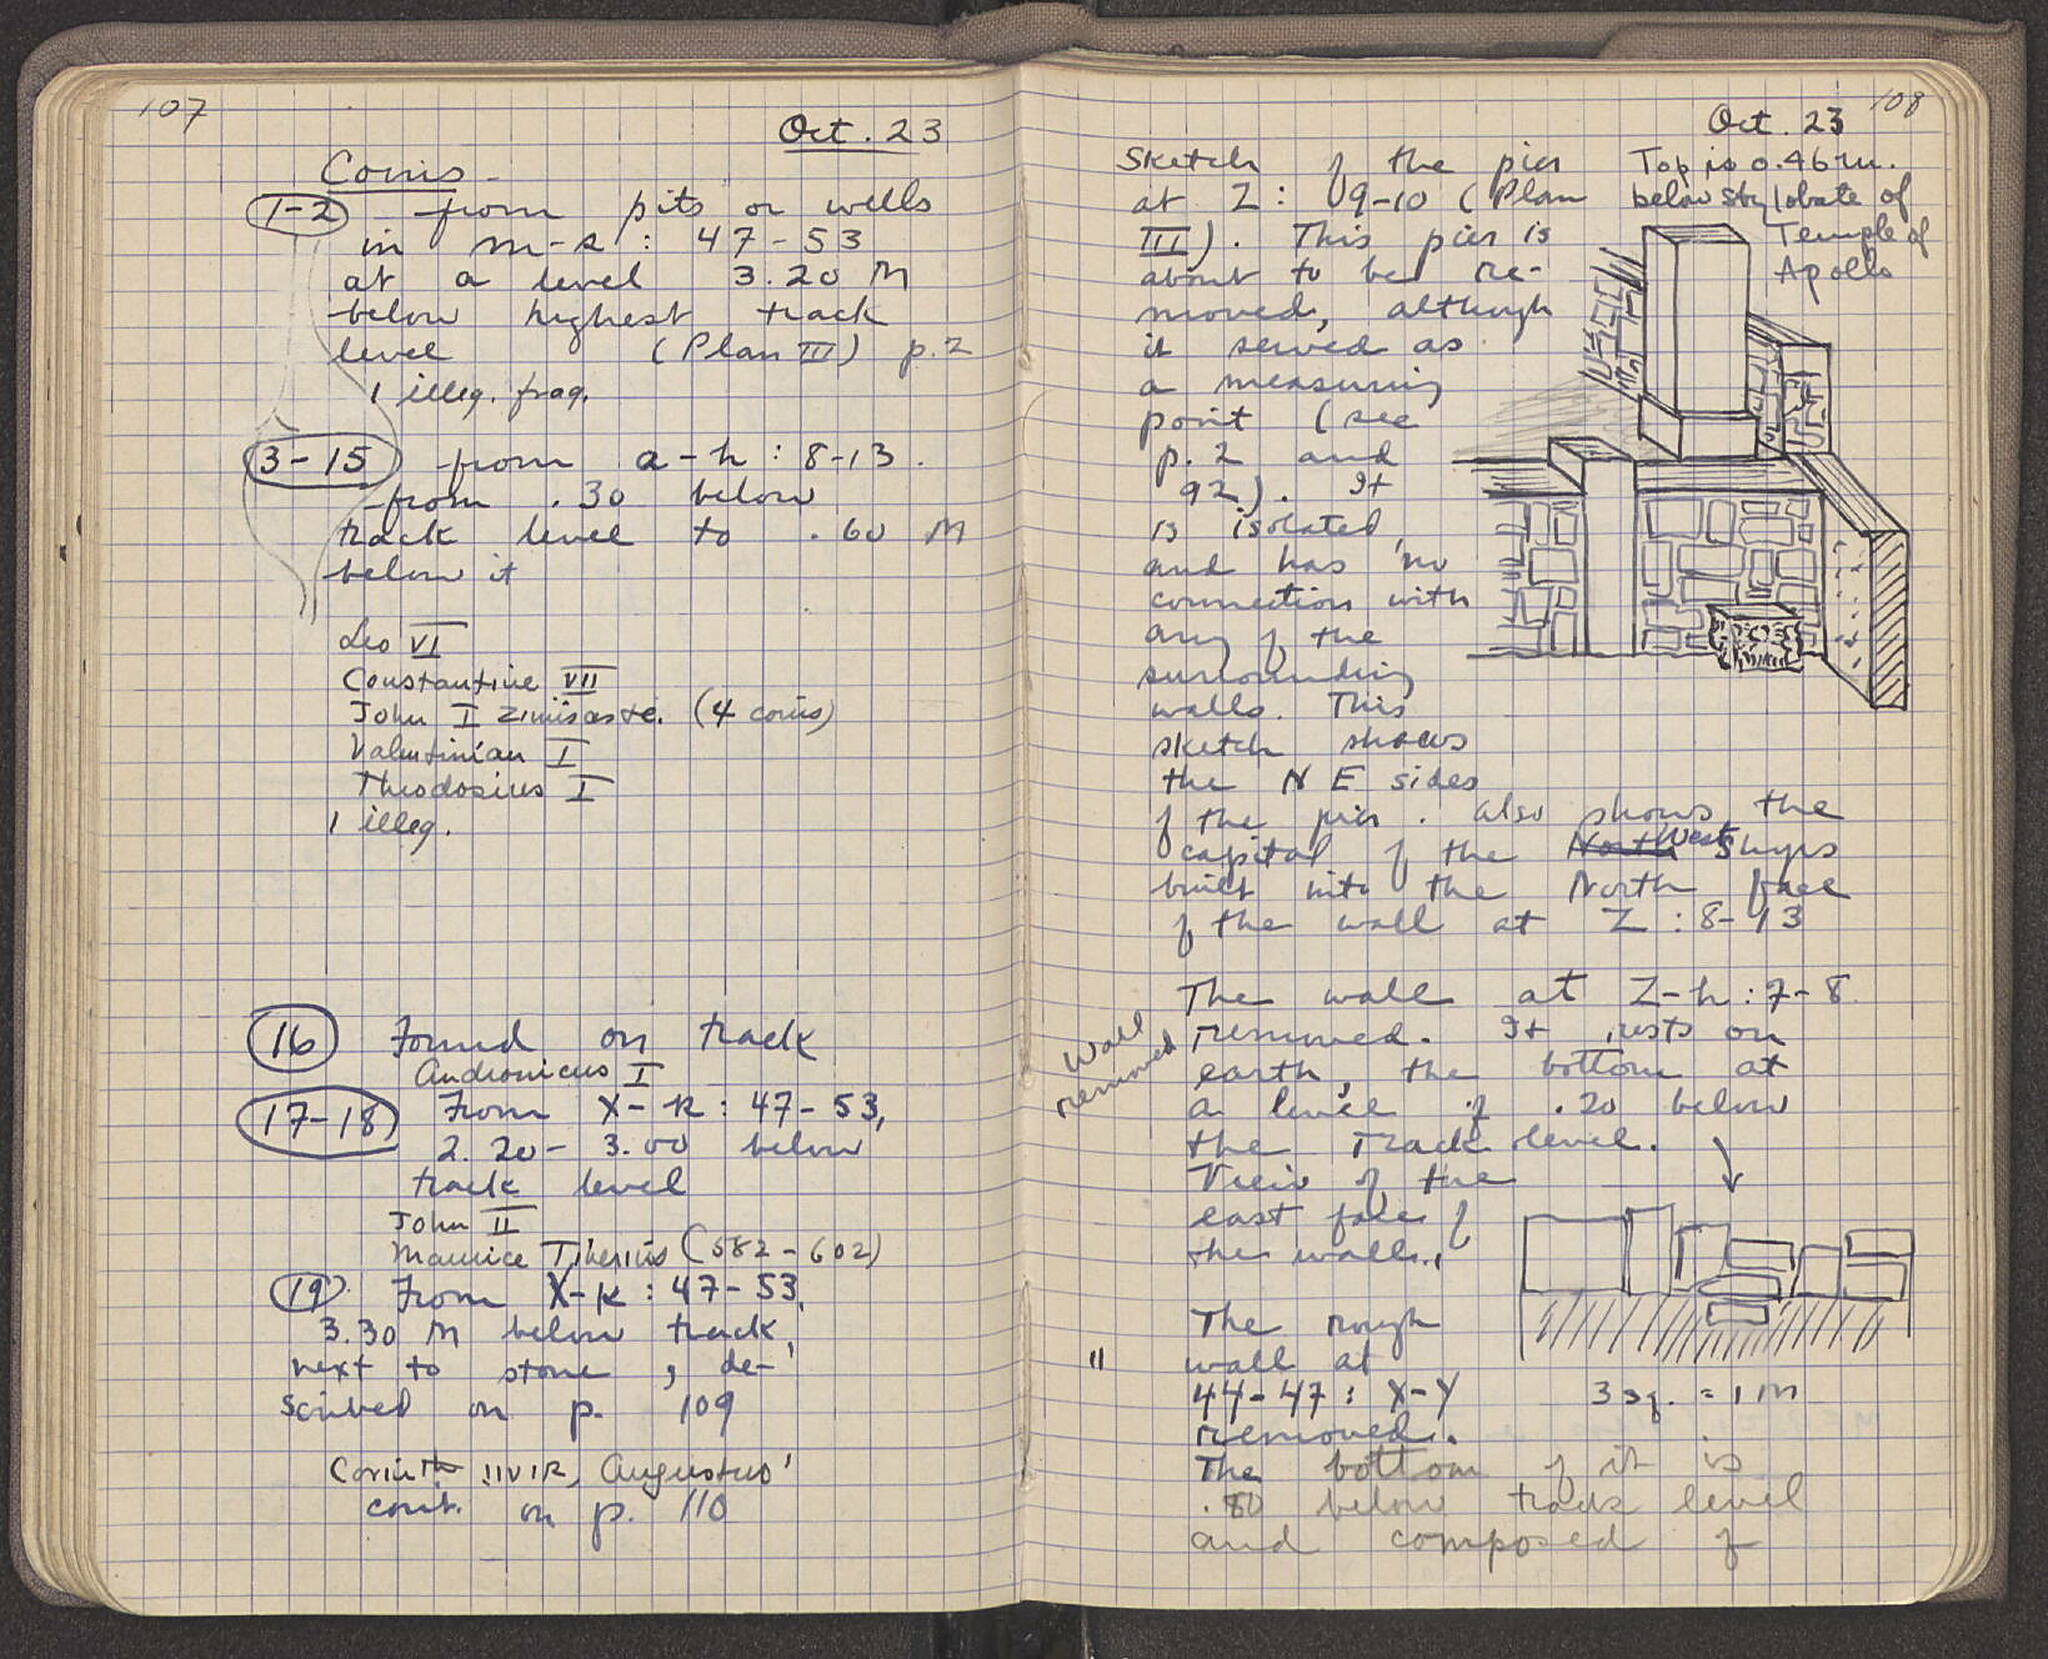 107
Oct. 23
Coins -
1-2 from pits or wells
in m-r : 47-53
at a level 3.20 M
below highest track
level (Plan III) p. 2
1 illeg. frag.
3-15 from a-h : 8-13.
from .30 below
track level to .60 M
below it
Leo VI
Constantine VII
John I Zimisaste. (4 coins)
Valentinian I
Theodosius I
1 illeg.
16 Found on track
Andronicus I
17-18 From X-k : 47-53,
2.20 - 3.00 below
track level
John II
Maurice Tiberius (582-602)
19 From X-k : 47-53,
3.30 M below track,
next to stone, de-
scribed on p. 109
Corinth IIVIR, Augustus
cont. on p. 110
108
Oct. 23
Sketch of the pier
at Z : 9-10 (Plan
III). This pier is
about to be re-
moved, although
it served as
a measuring
point (see
p. 2 and
92). It
is isolated,
and has no
connection with
any of the
surrounding
walls. This
sketch shows
the N E sides
of the pier. Also shows the
capital of the North West Shops
built into the North face
of the wall at Z : 8-13
Top is 0.46 m.
below stylobate of
Temple of
Apollo
The wall at Z-h : 7-8
removed. It rests on
earth, the bottom at
a level of .20 below
the track level.
View of the
east face of
the wall.
Wall
removed
The rough
" wall at
44-47 : X-Y
removed.
3 sq. = 1 m
The bottom of it is
.80 below track level
and composed of